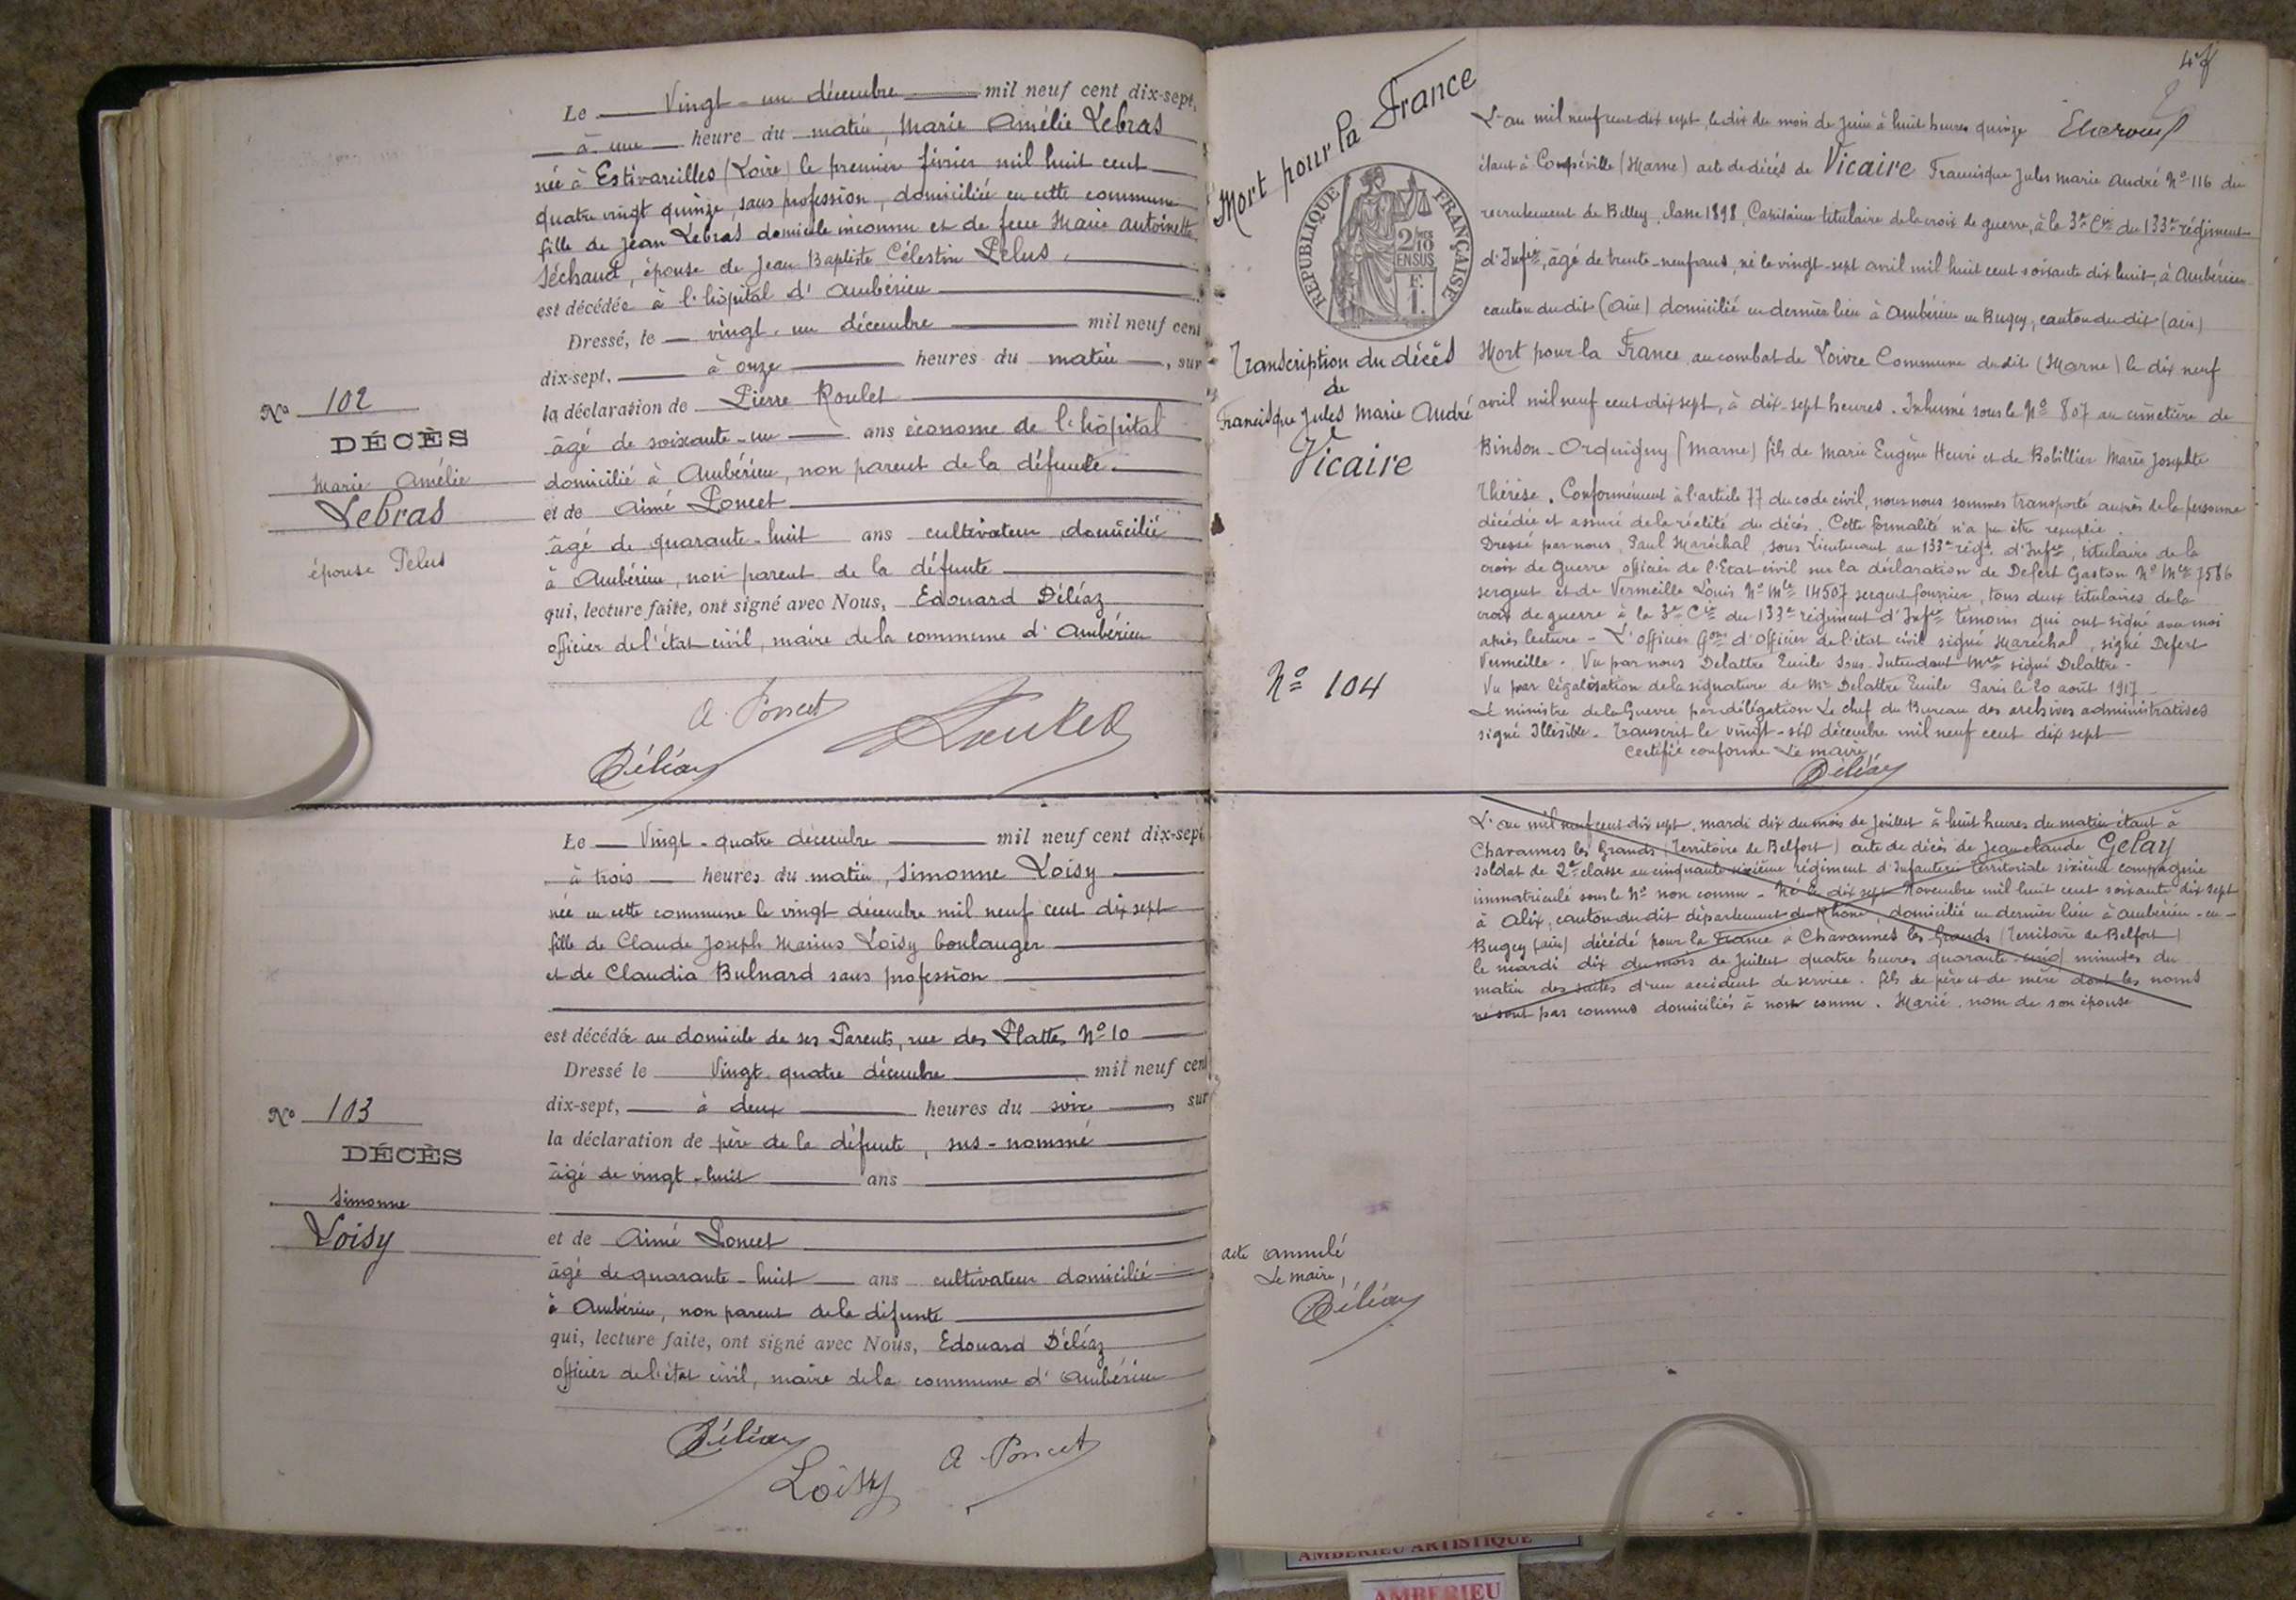 Le Vingt-un décembre mil neuf cent dix-sept,
à une heure du matin, Marie Amélie Lebras
née à Estivareilles (Loire) le premier février mil huit cent
quatre vingt quinze, sans profession, domiciliée en cette commune
fille de Jean Lebras domicile inconnu et de feue Marie Antoinette
Séchaud, épouse de Jean Baptiste Célestin Pelus,
est décédée à l'hôpital d'Ambérieu
Dressé, le vingt-un décembre mil neuf cent
dix-sept, à onze heures du matin, sur
la déclaration de Pierre Roulet
âgé de soixante-un ans économe de l'hôpital
domicilié à Ambérieu, non parent de la défunte.
et de Aimé Poncet
âgé de quarante-huit ans cultivateur domicilié
à Ambérieu, non parent de la défunte
qui, lecture faite, ont signé avec Nous, Edouard Déliaz
officier de l'état civil, maire de la commune d'Ambérieu
A. Poncet
Roulet
Déliaz
No 102
DÉCÈS
Marie Amélie
Lebras
épouse Pelus
Le Vingt-quatre décembre mil neuf cent dix-sept
à trois heures du matin, Simonne Loisy
née en cette commune le vingt décembre mil neuf cent dix sept
fille de Claude Joseph Marius Loisy boulanger
et de Claudia Bulnard sans profession
est décédée au domicile de ses Parents, rue des Plattes No 10
Dressé le Vingt-quatre décembre mil neuf cent
dix-sept, à deux heures du soir, sur
la déclaration de père de la défunte, sus-nommé
âgé de vingt-huit ans
et de Aimé Poncet
âgé de quarante-huit ans cultivateur domicilié
à Ambérieu, non parent de la défunte
qui, lecture faite, ont signé avec Nous, Edouard Déliaz
officier de l'état civil, maire de la commune d'Ambérieu
Déliaz
Loisy
A. Poncet
No 103
DÉCÈS
Simonne
Loisy
47
Mort pour la France
RÉPUBLIQUE FRANÇAISE
2/10 EN SUS
F. 1.
Transcription du décès
de
Francisque Jules Marie André
Vicaire
No 104
L'an mil neuf cent dix sept, le dix du mois de Juin à huit heures quinze
étant à Coupéville (Marne) acte de décès de Vicaire Francisque Jules Marie André No 116 du
recrutement de Belley, classe 1898, Capitaine titulaire de la croix de guerre, à la 3e Cie du 133e régiment
d'Infie, âgé de trente-neuf ans, né le vingt-sept avril mil huit cent soixante dix huit, à Ambérieu
canton du dit (Ain) domicilié en dernier lieu à Ambérieu en Bugey, canton du dit (Ain)
Mort pour la France au combat de Loivre Commune du dit (Marne) le dix neuf
avril mil neuf cent dix sept, à dix-sept heures. Inhumé sous le No 807 au cimetière de
Binson-Orquigny (Marne) fils de Marie Eugène Henri et de Bobillier Marie Josephte
Thérèse. Conformément à l'article 77 du code civil, nous nous sommes transporté auprès de la personne
décédée et assuré de la réalité du décès. Cette formalité n'a pu être remplie.
Dressé par nous, Paul Maréchal, sous Lieutenant au 133e régt d'Infie, titulaire de la
croix de Guerre officier de l'Etat civil sur la déclaration de Defert Gaston No Mle 7586
sergent et de Vermeille Louis No Mle 14507 sergent fourrier, tous deux titulaires de la
croix de guerre à la 3e Cie du 133e régiment d'Infie témoins qui ont signé avec moi
après lecture - L'officier d'officier de l'état civil signé Maréchal, signé Defert
Vermeille. Vu par nous Delattre Emile Sous-Intendant Mre signé Delattre -
Vu par légalisation de la signature de Mr Delattre Emile Paris le 20 août 1917
Le ministre de la Guerre par délégation Le chef du Bureau des archives administratives
signé Illisible. Transcrit le vingt-six décembre mil neuf cent dix sept
Certifié conforme Le maire,
Déliaz
L'an mil neuf cent dix sept, mardi dix du mois de Juillet à huit heures du matin étant à
Chavannes les Grands (Territoire de Belfort) acte de décès de Jean Claude Gelay
soldat de 2e classe au cinquante sixième régiment d'Infanterie Territoriale sixième compagnie
immatriculé sous le No non connu - Né le dix sept Novembre mil huit cent soixante dix sept
à Alix, canton du dit département du Rhône, domicilié en dernier lieu à Ambérieu-en-
Bugey (Ain) décédé pour la France à Chavannes les Grands (Territoire de Belfort)
le mardi dix du mois de Juillet quatre heures quarante cinq minutes du
matin des suites d'un accident de service. fils de père et de mère dont les noms
ne sont pas connus domiciliés à non connu. Marié, nom de son épouse
acte annulé
Le maire,
Déliaz
AMBERIEU ARTISTIQUE
AMBERIEU